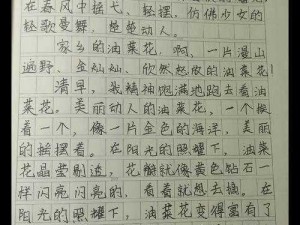 在春风中摇弋、轻摆,仿佛少女的
轻歌曼舞,楚楚动人。
家乡的油菜花,啊,一片漫山
遍野、金灿灿、欣然怒放的油菜花!
清早,我精神饱满地跑去看油
菜花。美丽动人的油菜花,一个挨
着一个,像一片金色的海洋,美丽
的摇摆着。在阳光的照耀下,油菜
花晶莹剔透,花瓣就像黄色钻石一
样闪亮闪亮的,看着就想去摘。在
阳光的照耀下,油菜花变得富有了